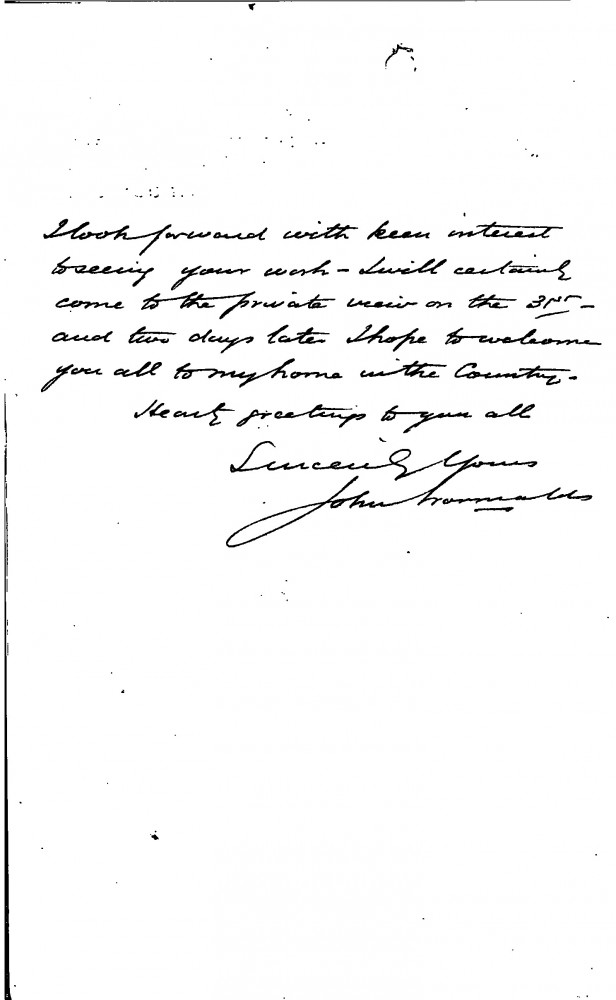 I look forward with keen interest
to seeing your work – I will certainly
come to the private view on the 31st –
and two days later I hope to welcome
you all to my home in the Country.
Hearty greetings to you all
Sincerely Yours
John